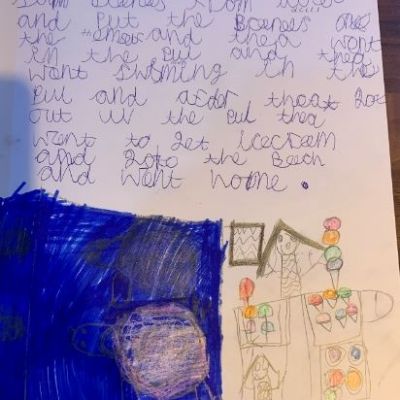 and put the
the and thea went
in the Pul and thea
went Swiming in the
Pul and acder theat got
out uv the Pul thea
went to get icecream
and goto the Beech
and went home.